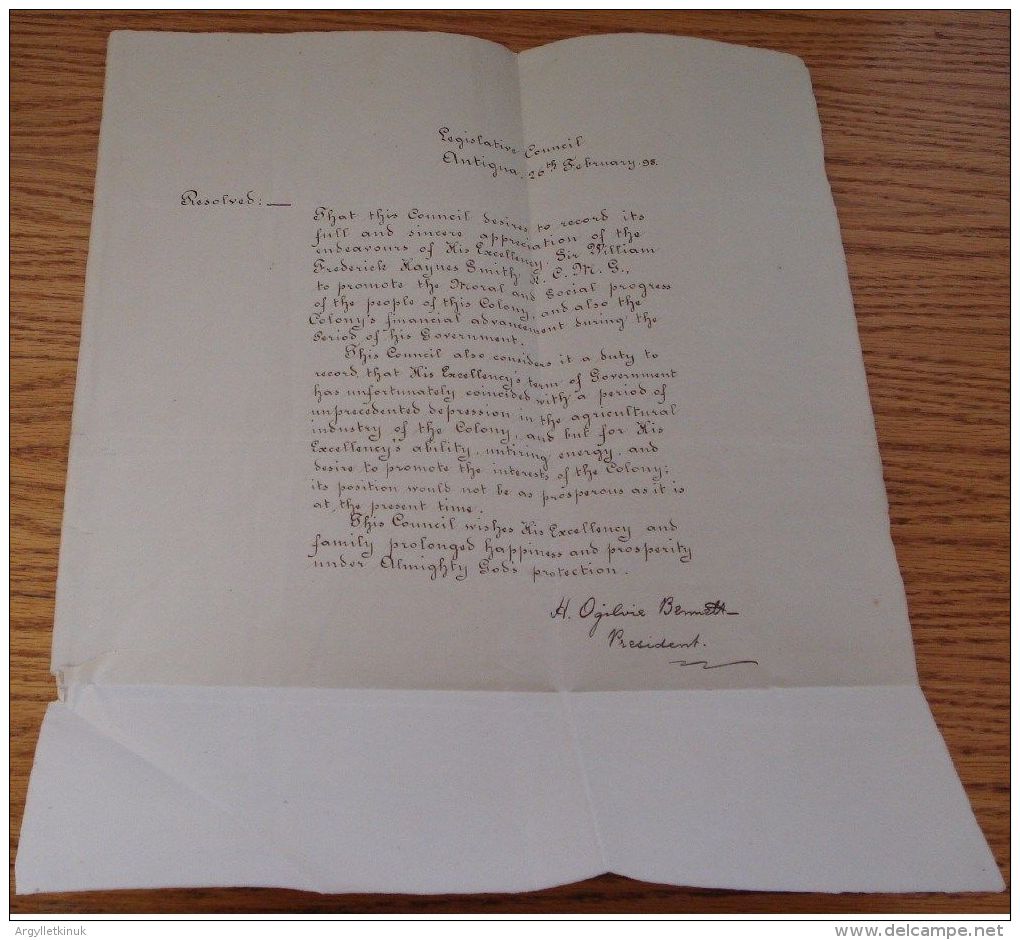 Legislative Council
Antigua, 26th February. 98.
Resolved:—
That this Council desires to record its
full and sincere appreciation of the
endeavours of His Excellency, Sir William
Frederick Haynes Smith, K. C. M. G.,
to promote the Moral and Social progress
of the people of this Colony, and also the
Colony's financial advancement during the
Period of his Government.
This Council also considers it a duty to
record that His Excellency's term of Government
has unfortunately coincided with a period of
unprecedented depression in the agricultural
industry of the Colony, and but for His
Excellency's ability, untiring energy, and
desire to promote the interests of the Colony;
its position would not be as prosperous as it is
at, the present time.
This Council wishes His Excellency and
family prolonged happiness and prosperity
under Almighty God's protection.
H. Ogilvie Bennett
President.
Argylletkinuk
delcampe.net